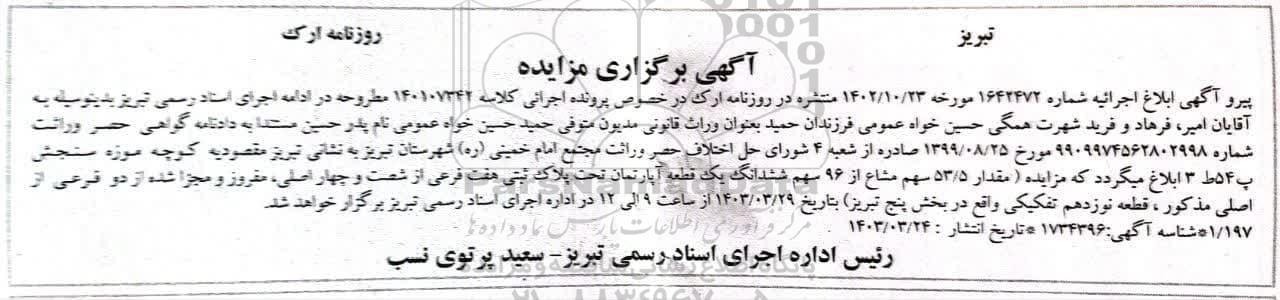 تبریز
روزنامه ارک
آگهی برگزاری مزایده
پیرو آگهی ابلاغ اجرائیه شماره ۱۶۴۲۴۷۲ مورخه ۱۴۰۲/۱۰/۲۳ منتشره در روزنامه ارک در خصوص پرونده اجرائی کلاسه ۱۴۰۱۰۷۳۴۲ مطروحه در ادامه اجرای اسناد رسمی تبریز بدینوسیله به
آقایان امیر، فرهاد و فرید شهرت همگی حسین خواه عمومی فرزندان حمید بعنوان وراث قانونی مدیون متوفی حمید حسین خواه عمومی نام پدر حسین مستندا به دادنامه گواهی حصر وراثت
شماره ۹۹۰۹۹۷۴۵۶۲۸۰۲۹۹۸ مورخ ۱۳۹۹/۰۸/۲۵ صادره از شعبه ۴ شورای حل اختلاف حصر وراثت مجتمع امام خمینی (ره) شهرستان تبریز به نشانی تبریز مقصودیه کوچه موزه سنجش
پ۵۴ط ۳ ابلاغ میگردد که مزایده ( مقدار ۵۳/۵ سهم مشاع از ۹۶ سهم ششدانگ یک قطعه آپارتمان تحت پلاک ثبتی هفت فرعی از شصت و چهار اصلی، مفروز و مجزا شده از دو فرعی از
اصلی مذکور ، قطعه نوزدهم تفکیکی واقع در بخش پنج تبریز) بتاریخ ۱۴۰۳/۰۳/۲۹ از ساعت ۹ الی ۱۲ در اداره اجرای اسناد رسمی تبریز برگزار خواهد شد.
۱/۱۹۷*شناسه آگهی:۱۷۳۴۳۹۶ *تاریخ انتشار : ۱۴۰۳/۰۳/۲۴
رئیس اداره اجرای اسناد رسمی تبریز- سعید پرتوی نسب
ParsNamadData
مرکز فرآوری اطلاعات پارس نماد داده ها